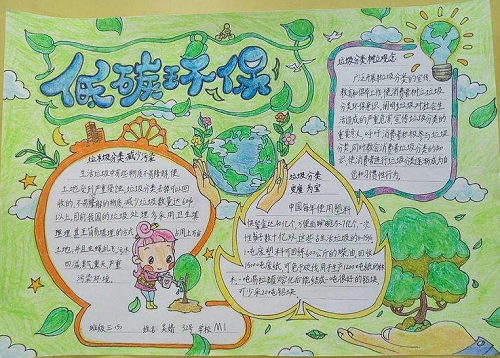 低碳环保
垃圾分类,树立理念
广泛开展垃圾分类的宣传、
教育和倡导工作,使消费者树立垃圾
分类环保意识,阐明垃圾对社会生
活造成的严重危害,宣传垃圾分类的
重要意义,呼吁消费者积极参与垃圾分
类,同时教会消费者垃圾分类的知
识,使消费者进行垃圾分类逐渐成为自
觉和习惯性行为。
垃圾分类,减少污染
生活垃圾中有些物质不易降解,使
土地受到严重侵蚀,垃圾分类去掉可以回
收的、不易降解的物质,减少垃圾数量达60%
以上,目前我国的垃圾处理多采用卫生填
埋甚至简易填埋的方式,占用上万亩
土地,并且虫蝇乱飞,污水
四溢,臭气熏天,严重
污染环境。
垃圾分类
变废为宝
中国每年使用塑料
快餐盒达40亿个,方便面碗5-7亿个,一次
性筷子数十亿双,这些占生活垃圾的8-15%。
1吨废塑料可回炼600公斤的柴油,回收
1500吨废纸,可免于砍伐用于生产1200吨纸的林
木。一吨易拉罐熔化后能结成一吨很好的铝块,
可少采20吨铝矿。
班级:三(5) 姓名:吴婧 学校:M1